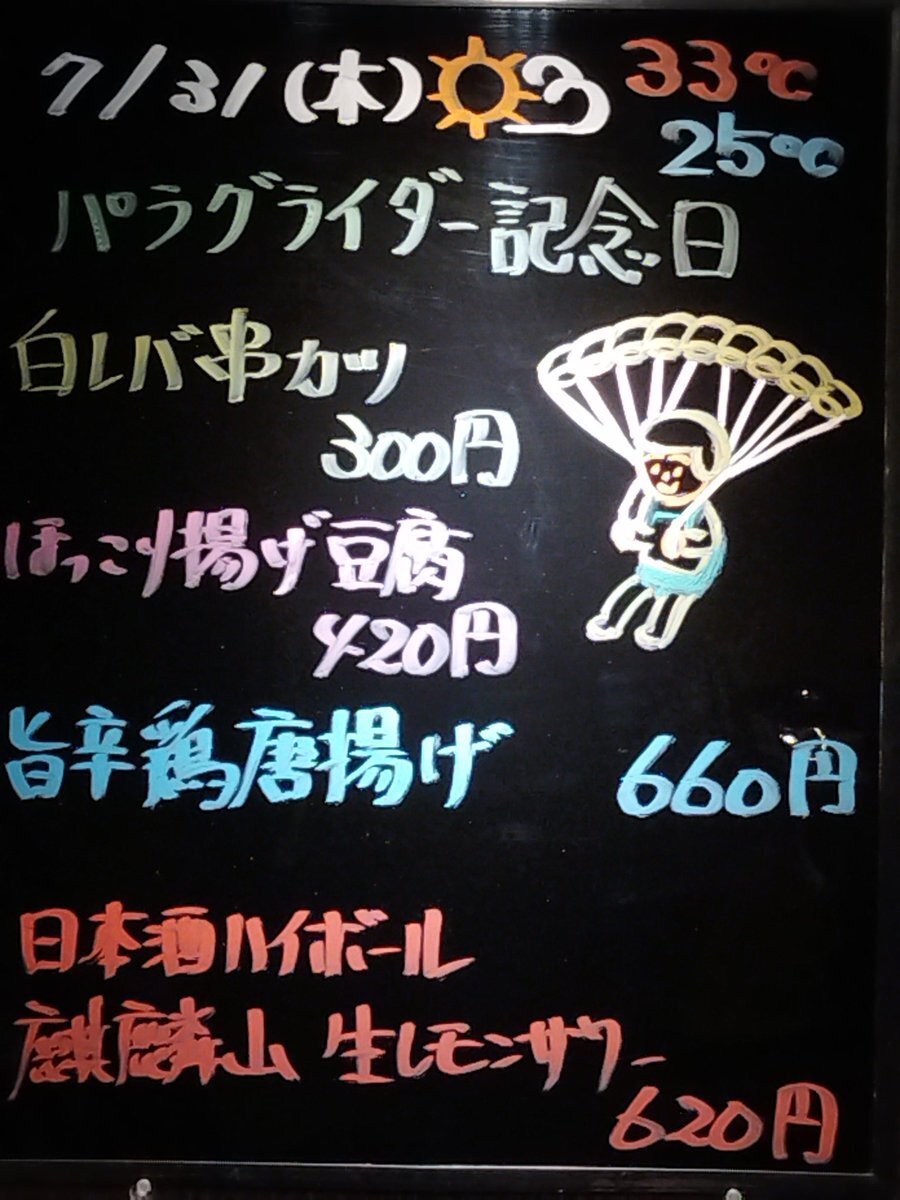 7/31(木) 33℃
25℃
パラグライダー記念日
白レバ串カツ
300円
ほっこり揚げ豆腐
420円
旨辛鶏唐揚げ 660円
日本酒ハイボール
麒麟山 生レモンサワー
620円